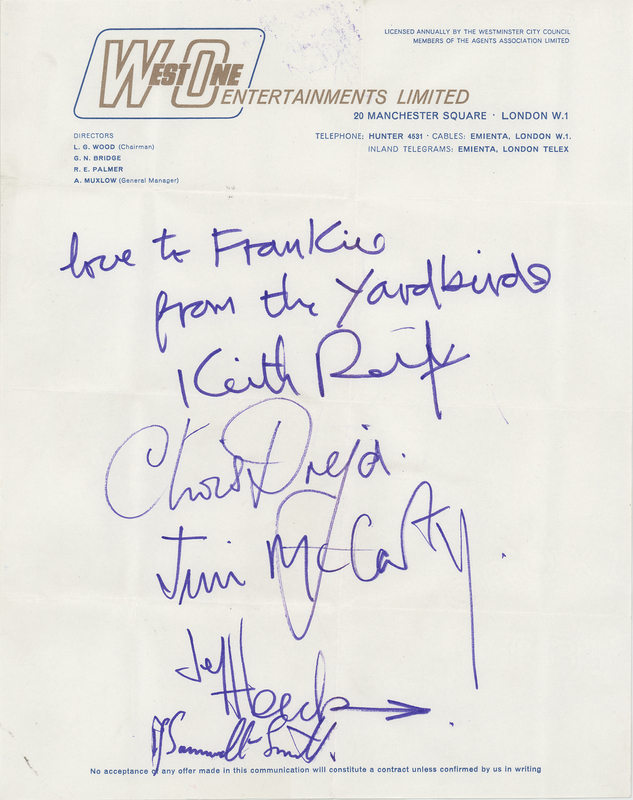 LICENSED ANNUALLY BY THE WESTMINSTER CITY COUNCIL
MEMBERS OF THE AGENTS ASSOCIATION LIMITED
WEST ONE
ENTERTAINMENTS LIMITED
20 MANCHESTER SQUARE · LONDON W.1
TELEPHONE: HUNTER 4531 · CABLES: EMIENTA, LONDON W.1.
INLAND TELEGRAMS: EMIENTA, LONDON TELEX
DIRECTORS
L. G. WOOD (Chairman)
G. N. BRIDGE
R. E. PALMER
A. MUXLOW (General Manager)
love to Frankie
from the Yardbirds
Keith Relf
Chris Dreja.
Jim McCarty.
Jeff Beck
P Samwell Smith.
No acceptance of any offer made in this communication will constitute a contract unless confirmed by us in writing